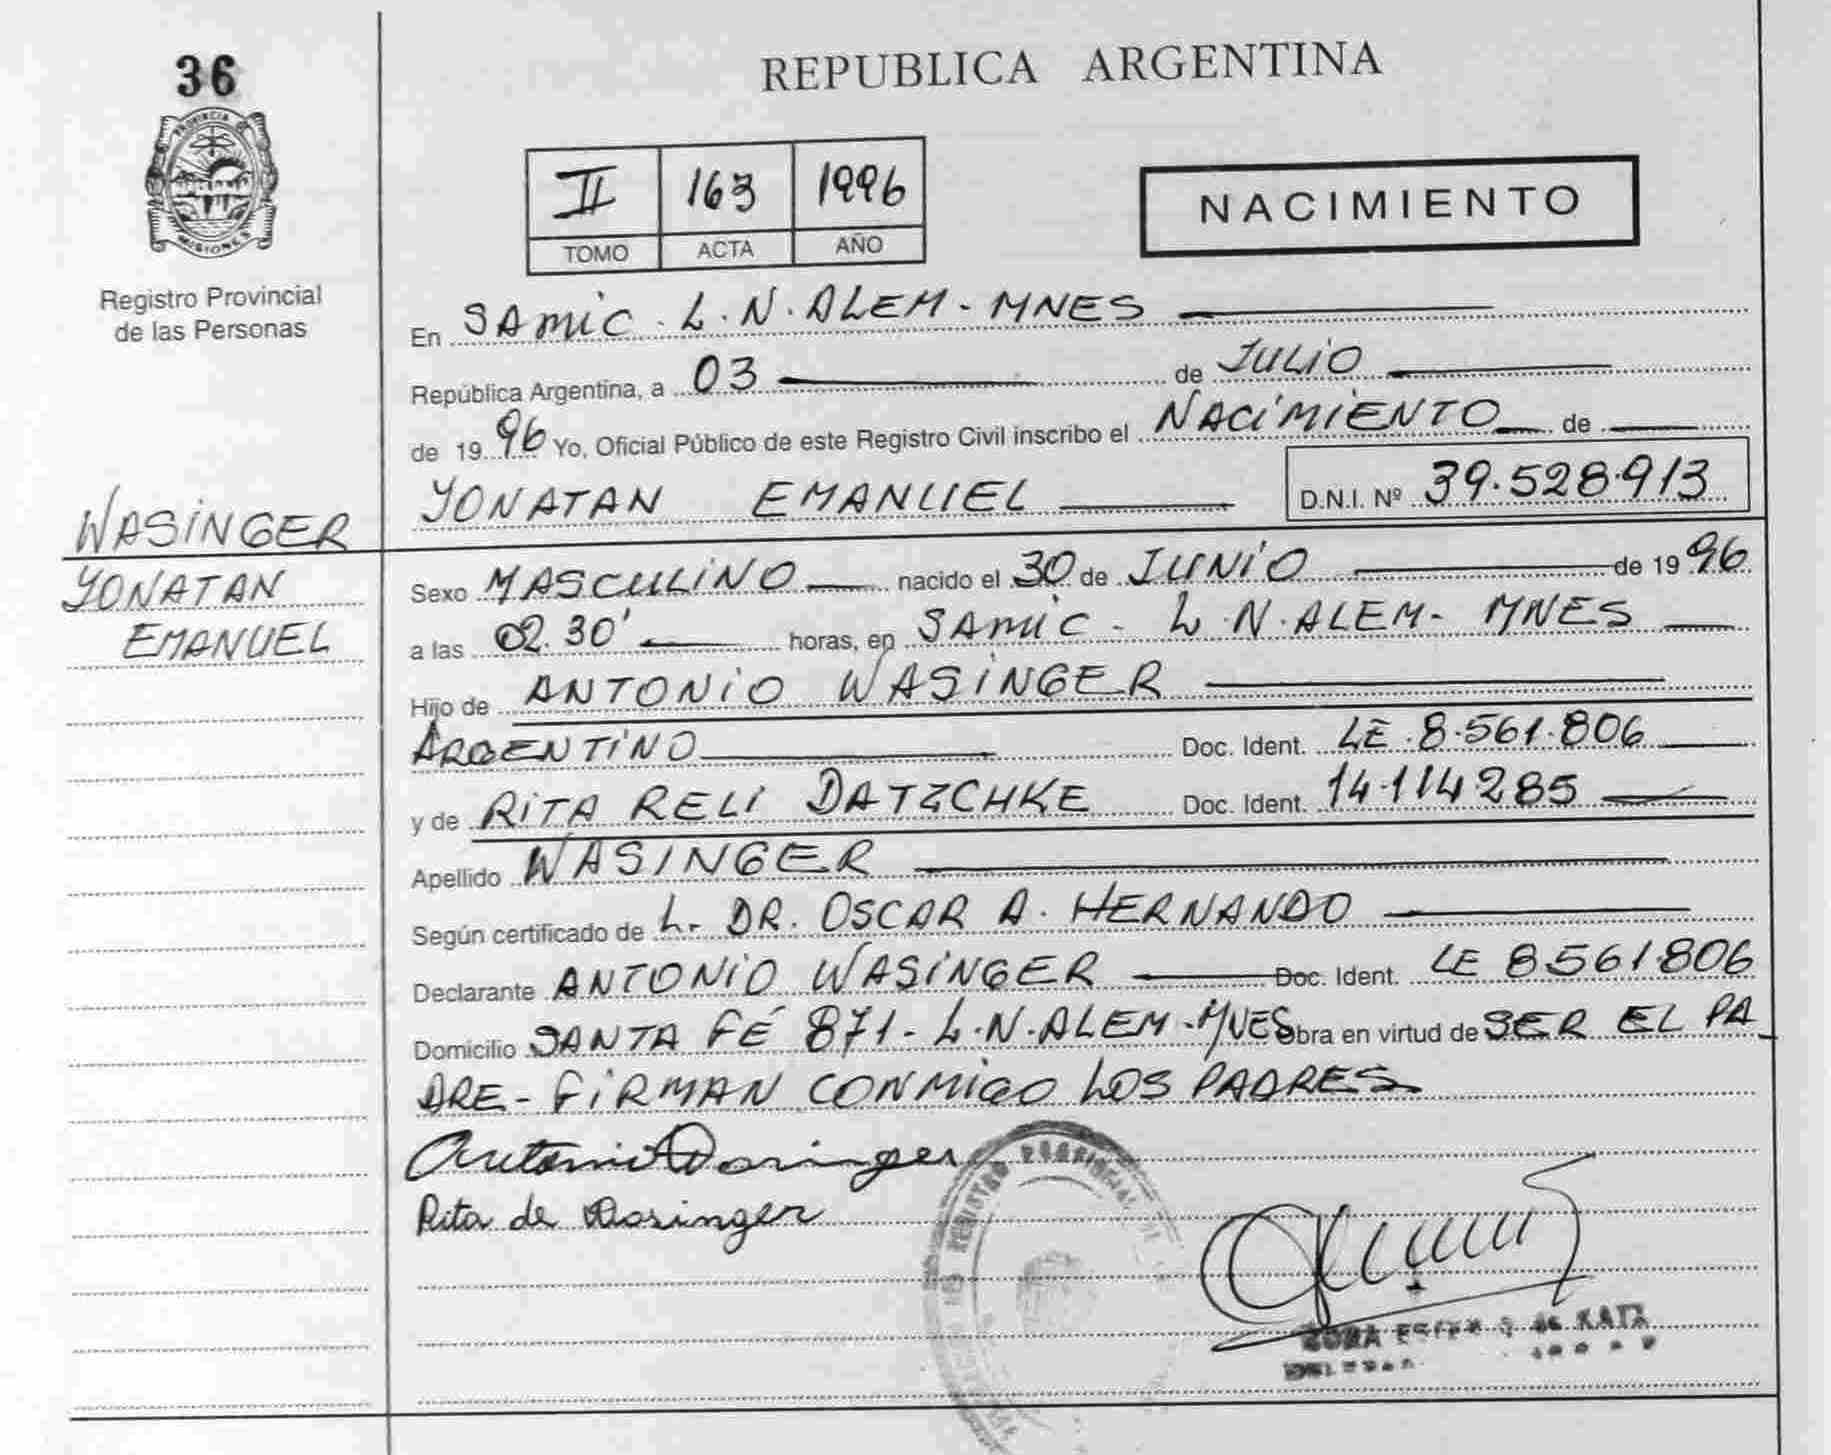 36
PROVINCIA DE
MISIONES
Registro Provincial
de las Personas
WASINGER
YONATAN
EMANUEL
REPUBLICA ARGENTINA
II 163 1996
TOMO ACTA AÑO
NACIMIENTO
En SAMIC. L.N. ALEM - MNES
República Argentina, a 03 de JULIO
de 1996 Yo, Oficial Público de este Registro Civil inscribo el NACIMIENTO de
YONATAN EMANUEL D.N.I. Nº 39.528.913
Sexo MASCULINO nacido el 30 de JUNIO de 1996
a las 02.30' horas, en SAMIC - L.N. ALEM - MNES
Hijo de ANTONIO WASINGER
ARGENTINO Doc. Ident. LE. 8.561.806
y de RITA RELI DATZCHKE Doc. Ident. 14.114285
Apellido WASINGER
Según certificado de L. DR. OSCAR A. HERNANDO
Declarante ANTONIO WASINGER Doc. Ident. LE 8561.806
Domicilio SANTA FÉ 871 - L.N. ALEM - MNES Obra en virtud de SER EL PA
DRE - FIRMAN CONMIGO LOS PADRES
Antonio Wasinger
Rita de Wasinger
REGISTRO PROVINCIAL
DE KATZ